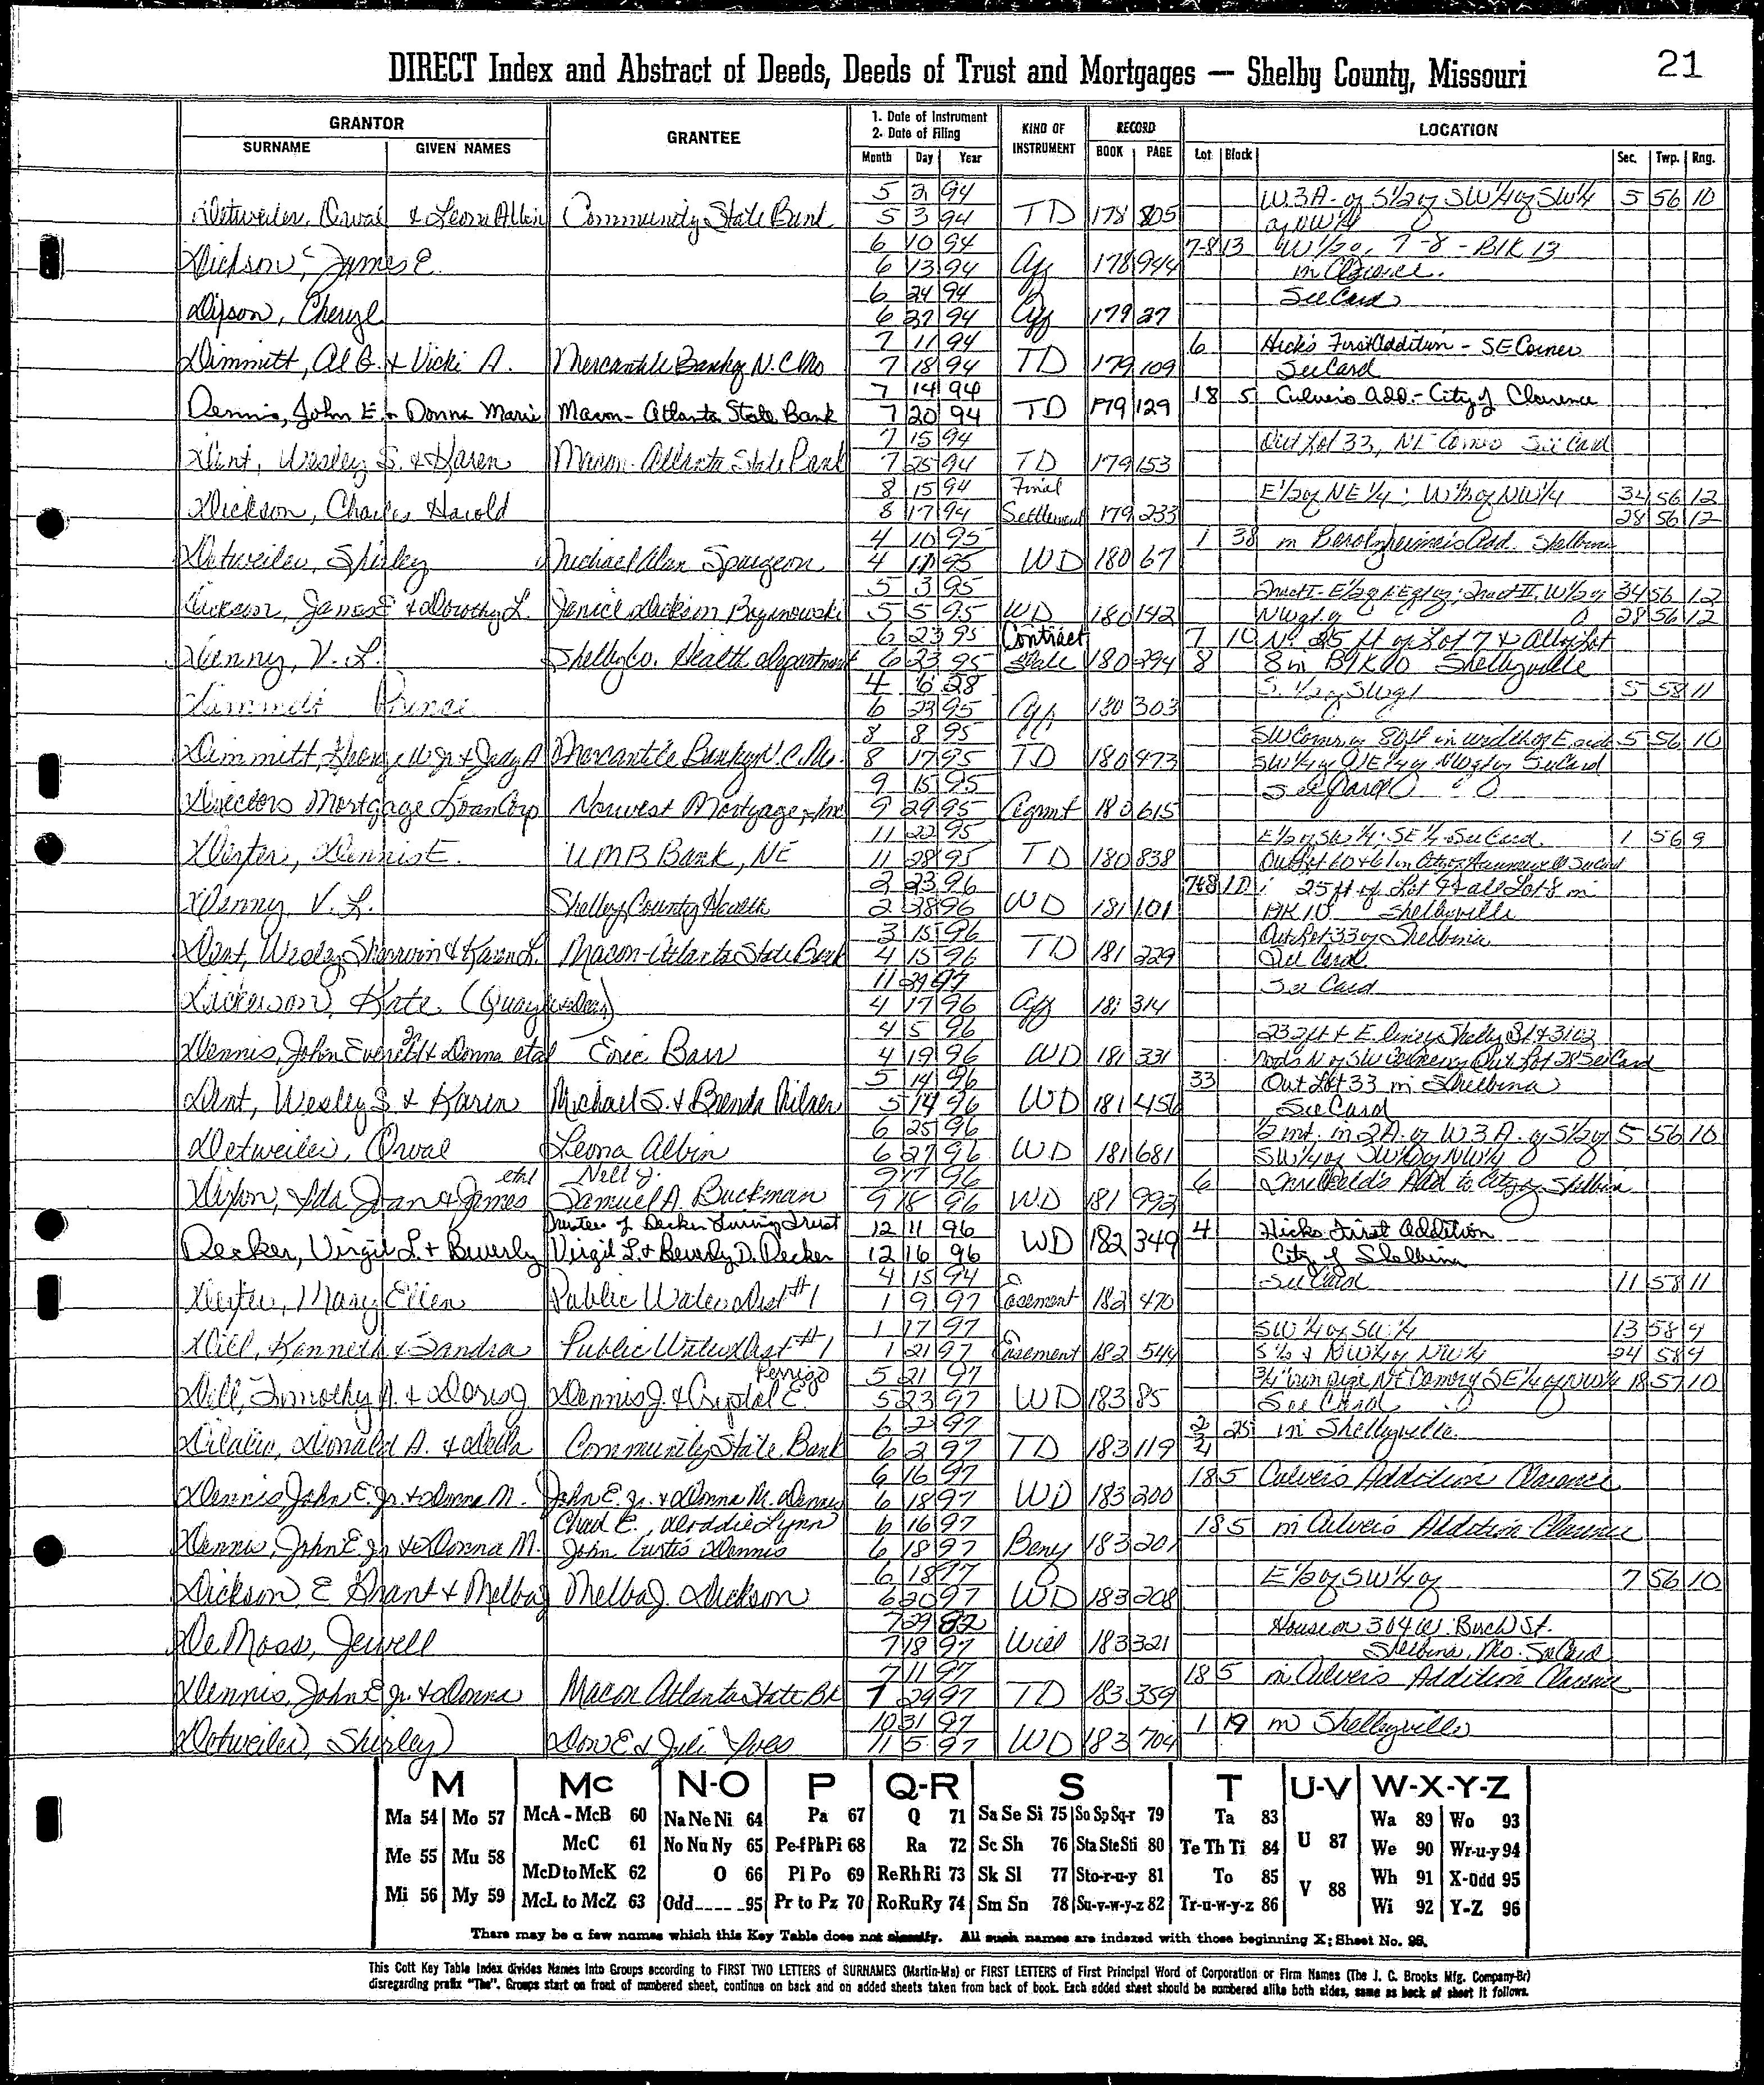 21
DIRECT Index and Abstract of Deeds, Deeds of Trust and Mortgages — Shelby County, Missouri
GRANTOR
SURNAME GIVEN NAMES
GRANTEE
1. Date of Instrument
2. Date of Filing
Month Day Year
KIND OF INSTRUMENT
RECORD
BOOK PAGE
LOCATION
Lot Block Sec. Twp. Rng.
5 94 W 3 A. of S 1/2 of SW 1/4 of SW 1/4 5 56 10
Detweiler, Orval & Leona Albin Community State Bank 5 3 94 TD 178 805 of NW 1/4
6 10 94 7-8 13 W 1/2 of 7-8 - Blk 13
Dickson, James E. 6 13 94 Aff 178 944 in Clarence.
6 24 94 See Card
Dyson, Cheryl 6 27 94 Aff 179 27
7 11 94 6 Hick's First Addition - SE Corner
Dimmitt, Al G. & Vicki A. Mercantile Bank of N. C. Mo 7 18 94 TD 179 109 See Card
7 14 94 18 5 Culver's Add. - City of Clarence
Dennis, John E. & Donna Marie Macon-Atlanta State Bank 7 20 94 TD 179 129
7 15 94 Out Lot 33, NE Corner See Card
Dent, Wesley S. & Karen Macon-Atlanta State Bank 7 25 94 TD 179 153
8 15 94 Final E 1/2 of NE 1/4; W 1/2 of NW 1/4 34 56 12
Dickson, Charles Harold 8 17 94 Settlement 179 233 28 56 12
4 10 95 1 38 in Berolzheimer's Add. Shelbina
Detweiler, Shirley Michael Alan Spurgeon 4 11 95 WD 180 67
5 3 95 Tract I - E 1/2 of NE ; Tract II, W 1/2 of 34 56 12
Dickson, James E & Dorothy L. Janice Dickson 5 5 95 WD 180 142 28 56 12
6 23 95 Contract 7 10 25 ft of Lot 7 & all of Lot
Denny, V. L. Shelby Co. Health Department 6 23 95 Sale 180 294 8 8 in Blk 10 Shelbyville
4 6 28 S. 1/2 of 5 58 11
Dimmitt Prince 6 23 95 Aff 180 303
8 8 95 SW Corner, 80 ft in width of E side 5 56 10
Dimmitt, & Judy A Mercantile Bank of N. C. Mo. 8 17 95 TD 180 473 SW 1/4 of NE 1/4 of See Card
9 15 95 See Card
Directors Mortgage Loan Corp Norwest Mortgage, Inc 9 29 95 Agmt 180 615
11 22 95 E 1/2 of SW 1/4; SE 1/4 - See Card 1 56 9
Dexter, Dennis E. UMB Bank, NE 11 28 95 TD 180 838
2 23 96 7&8 10 25 ft of Lot & all Lot 8 in
Denny, V. L. Shelby County Health 2 28 96 WD 181 101 Blk 10 Shelbyville
3 15 96 Out Lot 33 of Shelbina
Dent, Wesley Sherwin & Karen L. Macon-Atlanta State Bank 4 15 96 TD 181 229 See Card
11 29 See Card
Dickerson, Kate 4 17 96 Aff 181 314
4 5 96 232 ft & E. line of Shelby St
Dennis, John Everett & Donna etal Eric Barr 4 19 96 WD 181 331 See Card
5 14 96 33 Out Lot 33 in Shelbina
Dent, Wesley S & Karen Michael S. & Brenda Milner 5 14 96 WD 181 456 See Card
6 25 96 1/2 int. in 2 A. of W 3 A. of S 1/2 of 5 56 10
Detweiler, Orval Leona Albin 6 27 96 WD 181 681 SW 1/4 of SW 1/4 of NW 1/4
etal Nelly 9 17 96 6 Add to City of Shelbina
Dixon, Ida Jean & James Samuel A. Buckman 9 18 96 WD 181 993
Trustee of Decker Living Trust 12 11 96 4 Hicks First Addition
Decker, Virgil L. & Beverly Virgil L. & Beverly D. Decker 12 16 96 WD 182 349 City of Shelbina
4 15 94 See Card 11 58 11
Dexter, Mary Ellen Public Water Dist #1 1 9 97 Easement 182 470
1 17 97 SW 1/4 of SW 1/4 13 58 9
Diel, Kenneth & Sandra Public Water Dist #1 1 21 97 Easement 182 544 S 1/2 & NW 1/4 of NW 1/4 24 58 9
Perrigo 5 21 97 3/4" iron pipe, NE Corner of SE 1/4 of 18 57 10
Dill, Timothy A. & Doris J Dennis J. & Crystal E. 5 23 97 WD 183 85 See Card
6 2 97 25 in Shelbyville
Donald A. & Della Community State Bank 6 2 97 TD 183 119
6 16 97 18 5 Culver's Addition Clarence
Dennis John E. Jr. & Donna M. John E. Jr. & Donna M. Dennis 6 18 97 WD 183 200
Chad E., Lynn 6 16 97 18 5 in Culver's Addition Clarence
Dennis, John E Jr & Donna M. John Curtis Dennis 6 18 97 Beny 183 201
6 18 97 E 1/2 of SW 1/4 of 7 56 10
Dickson E Grant & Melba J Melba J. Dickson 6 20 97 WD 183 208
7 29 82 House on 304 W. Birch St.
DeMoss, Jewell 7 18 97 Will 183 321 Shelbina, Mo. See Card
7 11 97 18 5 in Culver's Addition Clarence
Dennis, John E Jr. & Donna Macon Atlanta State Bk 7 29 97 TD 183 359
10 31 97 1 19 in Shelbyville
Detweiler, Shirley Don E & Juli 11 5 97 WD 183 704
M Mc N-O P Q-R S T U-V W-X-Y-Z
Ma 54 Mo 57 McA - McB 60 Na Ne Ni 64 Pa 67 Q 71 Sa Se Si 75 So Sp Sq-r 79 Ta 83 U 87 Wa 89 Wo 93
Me 55 Mu 58 McC 61 No Nu Ny 65 Pe-f Ph Pi 68 Ra 72 Sc Sh 76 Sta Ste Sti 80 Te Th Ti 84 We 90 Wr-u-y 94
McD to McK 62 O 66 Pl Po 69 Re Rh Ri 73 Sk Sl 77 Sto-r-u-y 81 To 85 V 88 Wh 91 X-Odd 95
Mi 56 My 59 McL to McZ 63 Odd 95 Pr to Pz 70 Ro Ru Ry 74 Sm Sn 78 Su-v-w-y-z 82 Tr-u-w-y-z 86 Wi 92 Y-Z 96
There may be a few names which this Key Table does not classify. All such names are indexed with those beginning X; Sheet No. 95.
This Cott Key Table Index divides Names into Groups according to FIRST TWO LETTERS of SURNAMES (Martin-Ma) or FIRST LETTERS of First Principal Word of Corporation or Firm Names (The J. C. Brooks Mfg. Company-Br)
disregarding prefix "The". Groups start on front of numbered sheet, continue on back and on added sheets taken from back of book. Each added sheet should be numbered alike both sides, same as back of sheet it follows.